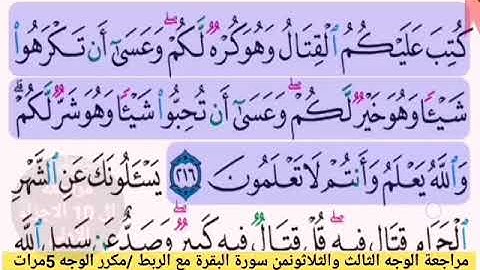 كُتِبَ عَلَيْكُمُ ٱلْقِتَالُ وَهُوَ كُرْهٌ لَّكُمْ ۖ وَعَسَىٰٓ أَن تَكْرَهُوا۟
شَيْـًٔا وَهُوَ خَيْرٌ لَّكُمْ ۖ وَعَسَىٰٓ أَن تُحِبُّوا۟ شَيْـًٔا وَهُوَ شَرٌّ لَّكُمْ ۗ
وَٱللَّهُ يَعْلَمُ وَأَنتُمْ لَا تَعْلَمُونَ ٢١٦ يَسْـَٔلُونَكَ عَنِ ٱلشَّهْرِ
ٱلْحَرَامِ قِتَالٍ فِيهِ ۖ قُلْ قِتَالٌ فِيهِ كَبِيرٌ ۖ وَصَدٌّ عَن سَبِيلِ ٱللَّهِ
مراجعة الوجه الثالث والثلاثونمن سورة البقرة مع الربط /مكرر الوجه 5مرات